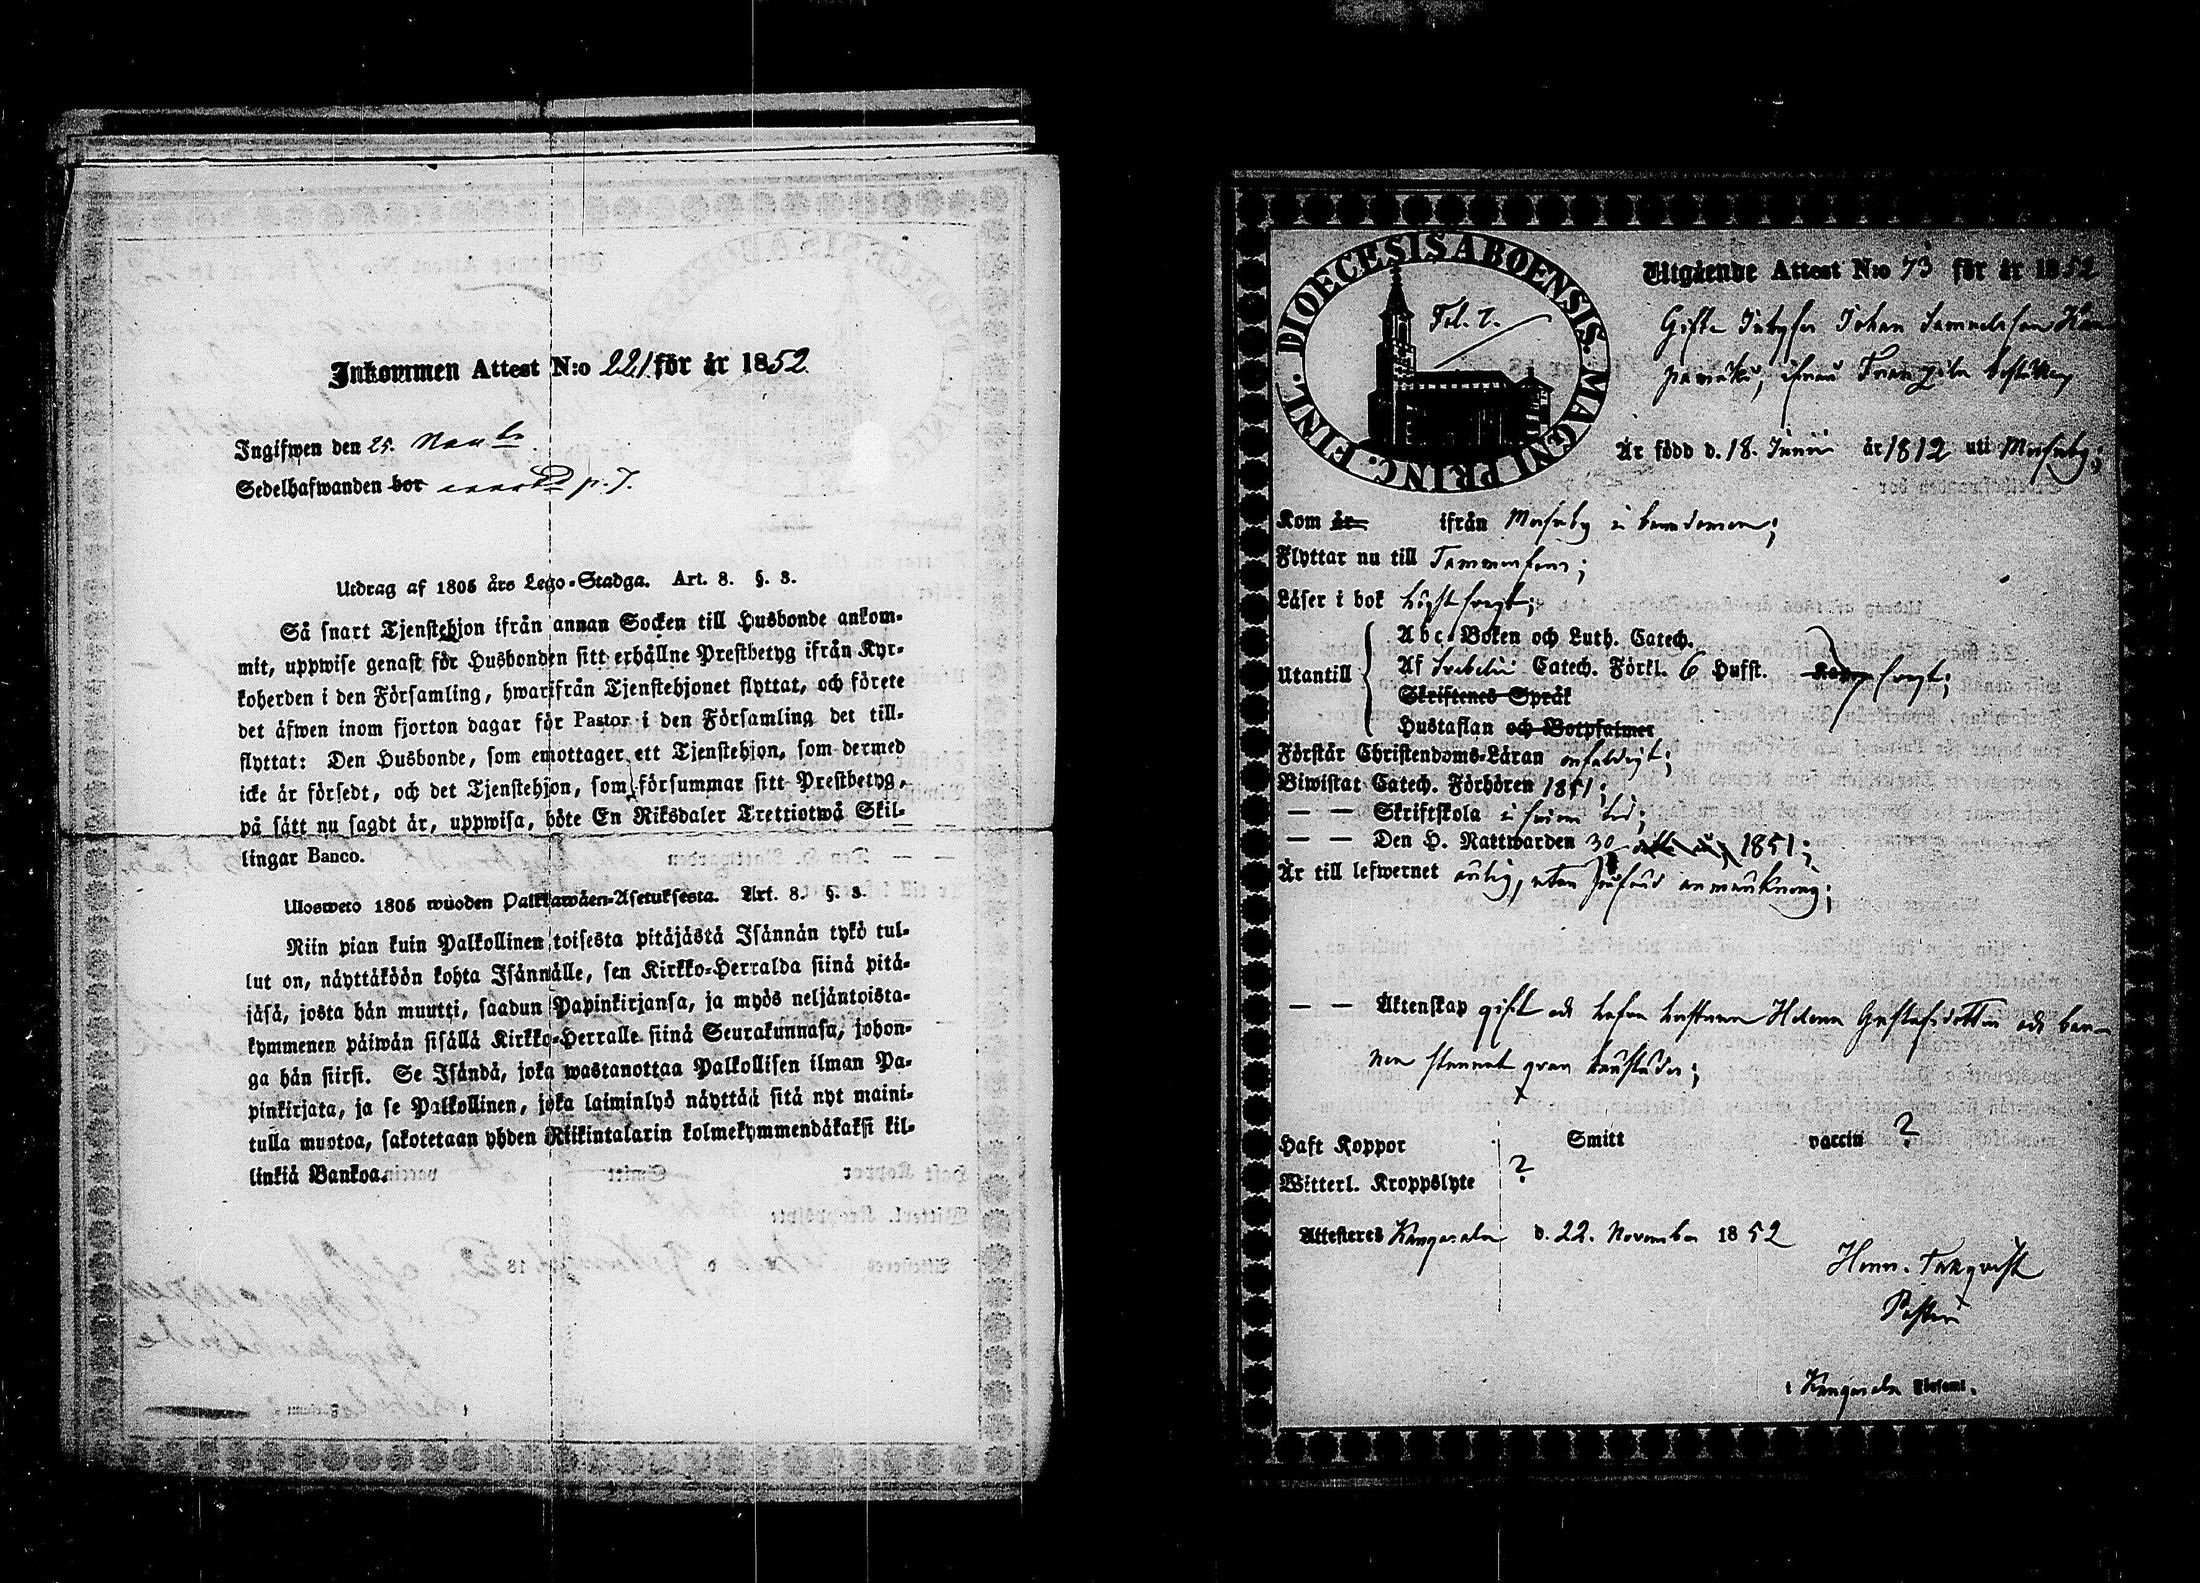 Inkommen Attest N:o 221 för år 1852.
Ingifwen den 25. Nov br.
Sedelhafwanden bor p. 7.
Utdrag af 1805 års Lego-Stadga. Art. 8. §. 3.
Så snart Tjenstehjon ifrån annan Socken till Husbonde ankom-
mit, uppwise genast för Husbonden sitt erhållne Prestbetyg ifrån Kyr-
koherden i den Församling, hwarifrån Tjenstehjonet flyttat, och förete
det äfwen inom fjorton dagar för Pastor i den Församling det till-
flyttat: Den Husbonde, som emottager ett Tjenstehjon, som dermed
icke är försedt, och det Tjenstehjon, som försummar sitt Prestbetyg,
på sätt nu sagdt är, uppwisa, böte En Riksdaler Trettiotwå Skil-
lingar Banco.
Ulosweto 1805 wuoden Palkkawäen-Asetuksesta. Art. 8. §. 3.
Niin pian kuin Palkollinen toisesta pitäjästä Isännän tykö tul-
lut on, näyttäköön kohta Isännälle, sen Kirkko-Herralda siinä pitä-
jäsä, josta hän muutti, saadun Papinkirjansa, ja myös neljäntoista-
kymmenen päiwän sisällä Kirkko-Herralle siinä Seurakunnasa, johon-
ga hän siirsi. Se Isändä, joka wastanottaa Palkollisen ilman Pa-
pinkirjata, ja se Palkollinen, joka laiminlyö näyttää sitä nyt maini-
tulla muotoa, sakotetaan yhden Riikintalarin kolmekymmendäkaksi kil-
linkiä Bankoa.
DIOECESIS ABOENSIS. MAGNI PRINC. FINL.
Fol. 7.
Utgående Attest N:o 73 för år 1852
Gifte Inhyses Johan Samuelsson Kan
Är född d. 18. Junii år 1812 uti Messuby;
Kom år ifrån Messuby i barndomen;
Flyttar nu till Tammerfors;
Läser i bok högst svagt;
Utantill
Abc-Boken och Luth. Catech.
Af Svebelii Catech. Förkl. 6 Hufst. svagt;
Skriftenes Språk
Hustaflan och Botpsalmer
Förstår Christendoms-Läran enfaldigt;
Biwistat Catech. Förhören 1851;
— — Skriftskola i sinom tid;
— — Den H. Nattwarden 30 1851;
Är till lefwernet ärlig, utan anmärkning;
— — Äktenskap gift och hafva hustrun Helena Gustafsdotter och bar-
nen
Haft Koppor Smitt vaccin ?
Witterl. Kroppslyte ?
Attesteres Kangasala d. 22. November 1852
Pastor
i Kangasala Förfaml.